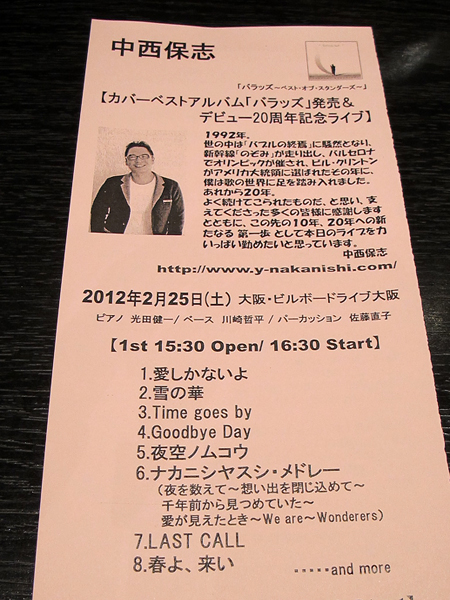 中西保志
「バラッズ～ベスト・オブ・スタンダーズ～」
【カバーベストアルバム「バラッズ」発売&
デビュー20周年記念ライブ】
1992年。
世の中は「バブルの終焉」に騒然となり、
新幹線「のぞみ」が走り出し、バルセロナ
でオリンピックが催され、ビル・クリントン
がアメリカ大統領に選ばれたその年に、
僕は歌の世界に足を踏み入れました。
あれから20年。
よく続けてこられたものだ、と思い、支
えてくださった多くの皆様に感謝します
とともに、この先の10年、20年への新
たなる 第一歩 として本日のライブを力
いっぱい勤めたいと思っています。
中西保志
http://www.y-nakanishi.com/
2012年2月25日(土) 大阪・ビルボードライブ大阪
ピアノ 光田健一/ ベース 川崎哲平 / パーカッション 佐藤直子
【1st 15:30 Open/ 16:30 Start】
1.愛しかないよ
2.雪の華
3.Time goes by
4.Goodbye Day
5.夜空ノムコウ
6.ナカニシヤスシ・メドレー
（夜を数えて～想い出を閉じ込めて～
千年前から見つめていた～
愛が見えたとき～We are～Wonderers）
7.LAST CALL
8.春よ、来い
.....and more